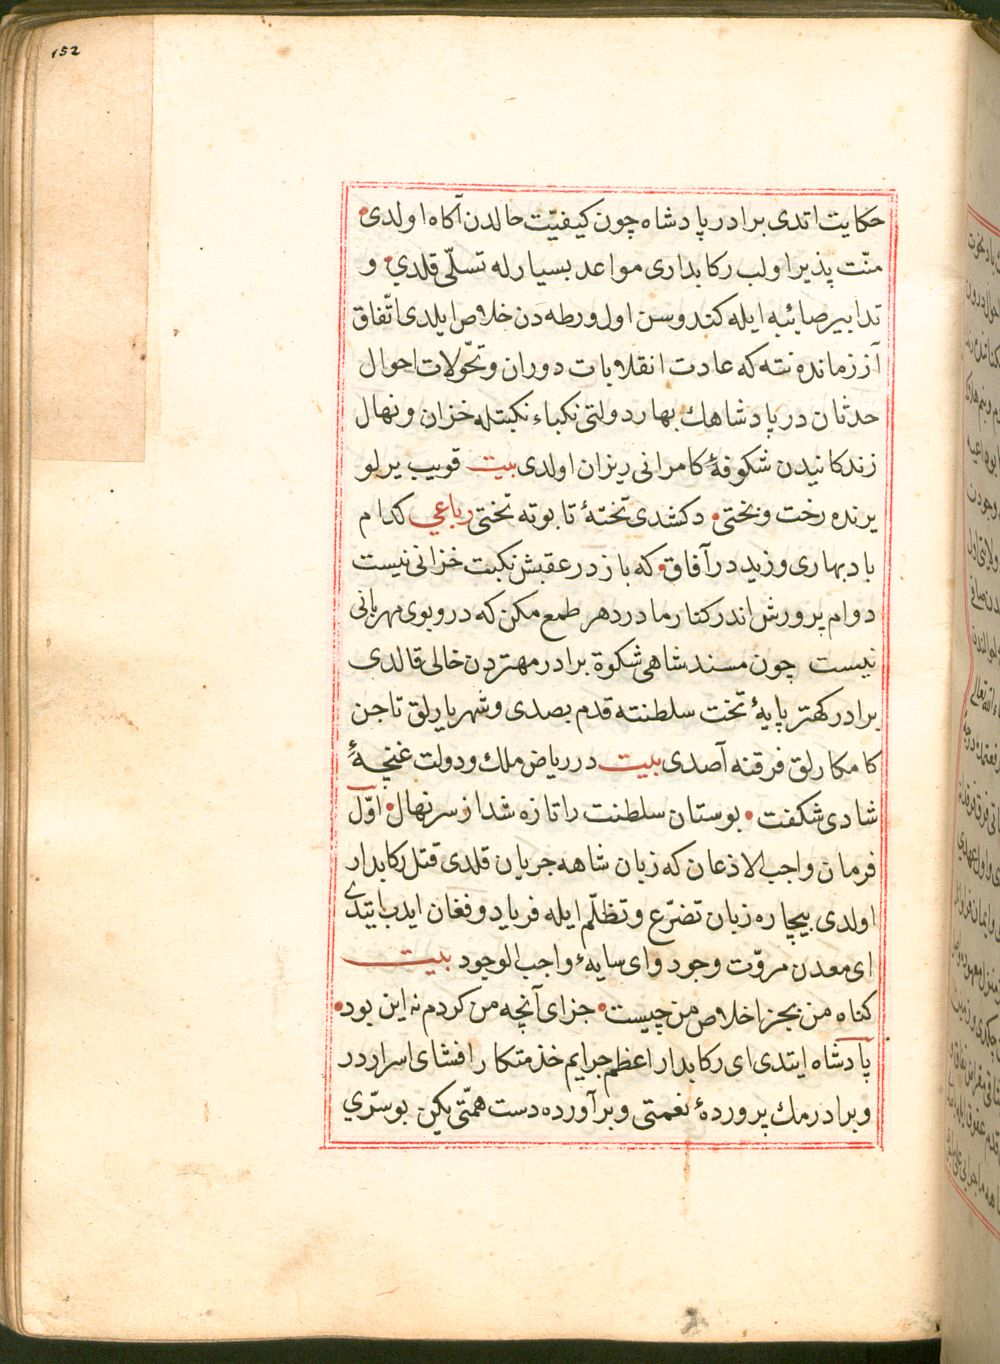 152
حكايت اتدى برادر پادشاه چون كيفيّت حالدن آكاه اولدى
منّت پذير اولب ركابدارى مواعد بسيارله تسلّى قلدي و
تدابير صائبه ايله كندوسن اول ورطه دن خلاص ايلدى اتّفاق
آز زمانده نته كه عادت انقلابات دوران و تحّولات احوال
حدثان در پادشاهك بهار دولتى نكباء نكبتله خزان و نهال
زندكانيدن شكوفهٔ كامرانى ريزان اولدى بيت قويب يرلو
يرنده رخت و بختى دكشدى تختهٔ تابوته تختى رباعي كدام
باد بهارى وزيد در آفاق كه باز در عقبش نكبت خزانى نيست
دوام پرورش اندر كنار مادر دهر طمع مكن كه درو بوى مهربانى
نيست چون مسند شاهى شكوة برادر مهتردن خالى قالدى
برادر كهتر پايهٔ تخت سلطنته قدم بصدى و شهريارلق تاجن
كامكارلق فرقنه آصدى بيت در رياض ملك و دولت غنچهٔ
شادى شكفت بوستان سلطنت را تازه شد از سر نهال اوّل
فرمان واجب الاذعان كه زبان شاهه جريان قلدى قتل ركابدار
اولدى بيچاره زبان تضرّع و تظلّم ايله فرياد و فغان ايدب ايتدى
اى معدن مروّت وجود واى سايهٔ واجب الوجود بيت
كناه من بجز اخلاص من چيست جزاى آنچه من كردم نه اين بود
پادشاه ايتدى اى ركابدار اعظم جرايم خذمتكارا افشاى اسراردر
و برادرمك پروردهٔ نعمتى و برآورده دست همّتى يكن بو سرّي